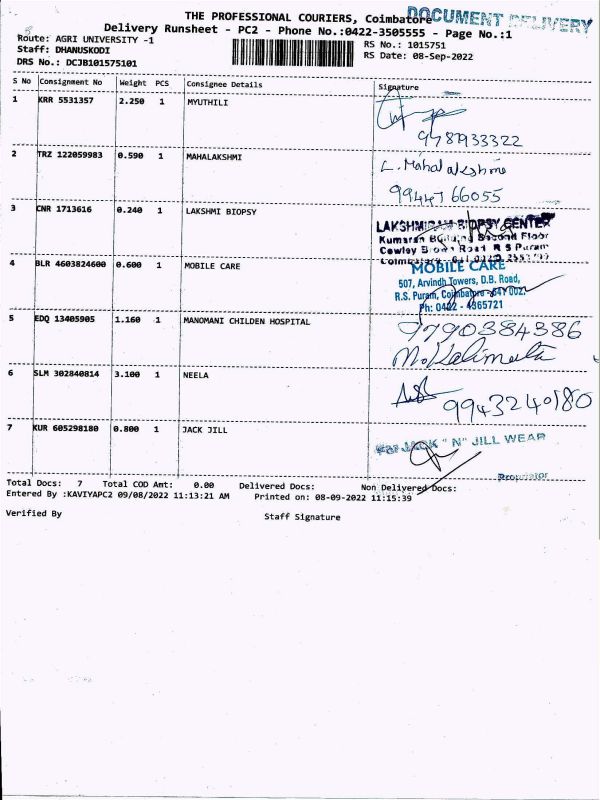 THE PROFESSIONAL COURIERS, Coimbatore
DOCUMENT DELIVERY
Delivery Runsheet - PC2 - Phone No.:0422-3505555 - Page No.:1
Route: AGRI UNIVERSITY -1
RS No.: 1015751
Staff: DHANUSKODI
RS Date: 08-Sep-2022
DRS No.: DCJB101575101
S No Consignment No Weight PCS Consignee Details Signature
1 KRR 5531357 2.250 1 MYUTHILI
9787933322
2 TRZ 122059983 0.590 1 MAHALAKSHMI
L. Mahalakshmi
99447 66055
3 CNR 1713616 0.240 1 LAKSHMI BIOPSY
LAKSHMIRAM BIOPSY CENTER
Kumaran Building Second Floor
Cowley Brown Road R S Puram
4 BLR 4603824600 0.600 1 MOBILE CARE
MOBILE CARE
507, Arvindh Towers, D.B. Road,
R.S. Puram, Coimbatore-641 002.
Ph: 0422 - 4365721
5 EDQ 13405905 1.160 1 MANOMANI CHILDEN HOSPITAL
9790384386
6 SLM 302840814 3.100 1 NEELA
9943240180
7 KUR 605298180 0.800 1 JACK JILL
For JACK "N" JILL WEAR
Proprietor
Total Docs: 7 Total COD Amt: 0.00 Delivered Docs: Non Delivered Docs:
Entered By :KAVIYAPC2 09/08/2022 11:13:21 AM Printed on: 08-09-2022 11:15:39
Verified By Staff Signature